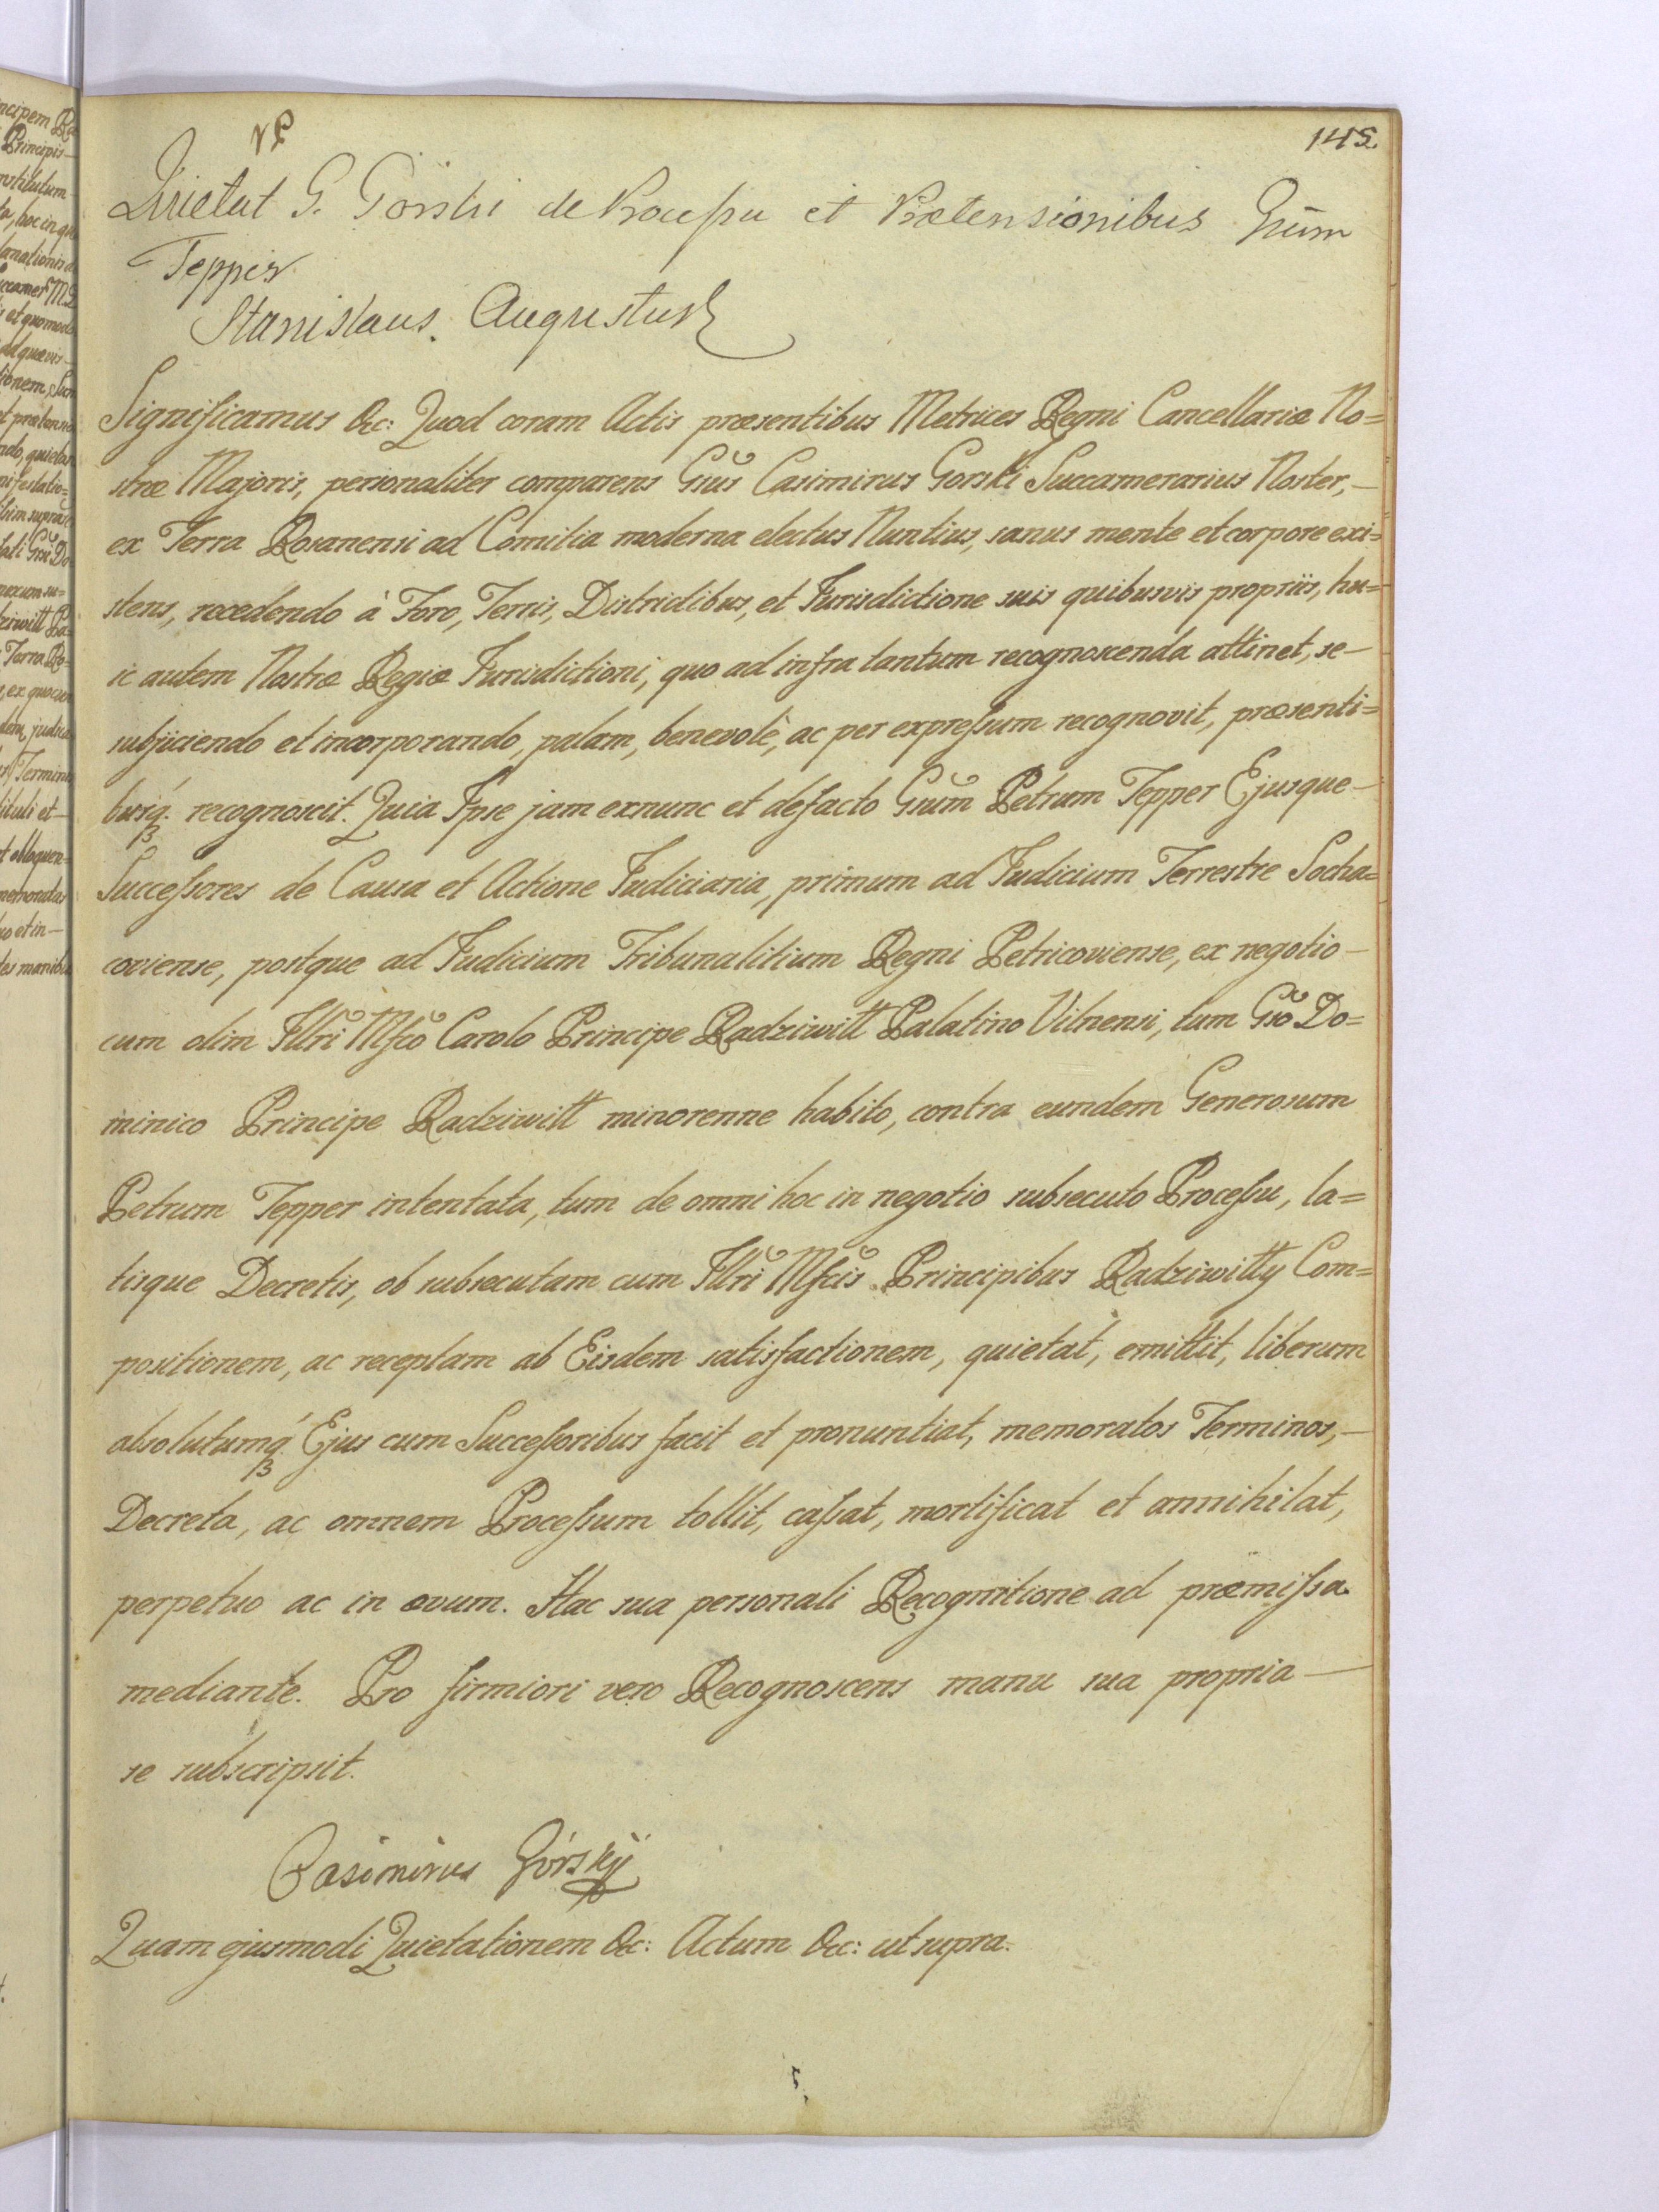 145.
Quietat G. Gorski de Processu et Prætensionibus Gnũm
Tepper
Stanislaus Augustus
Significamus &c: Quod coram Actis præsentibus Metrices Regni Cancellariæ No=
stræ Majoris, personaliter comparens Gsũs Casimirus Gorski Succamerarius Noster,—
ex Terra Rosanensi ad Comitia moderna electus Nuntius, sanus mente et corpore exi=
stens, recedendo à Foro, Terris, Districtibus, et Jurisdictione suis quibusvis propriis, hu=
ic autem Nostræ Regiæ Jurisdictioni, quo ad infra tantum recognoscenda attinet, se—
subjiciendo et incorporando, palam, benevolè, ac per expressum recognovit, præsenti=
busq́. recognoscit. Quia Ipse jam exnunc et defacto Gsũm Petrum Tepper Ejusque—
Successores de Causa et Actione Judiciaria, primum ad Judicium Terrestre Socha=
coviense, postque ad Judicium Tribunalitium Regni Petricoviense, ex negotio—
cum olim Illrĩ Mfcõ Carolo Principe Radziwiłł Palatino Vilnensi, tum Gsõ Do=
minico Principe Radziwiłł minorenne habito, contra eundem Generosum
Petrum Tepper intentata, tum de omni hoc in negotio subsecuto Processu, la=
tisque Decretis, ob subsecutam cum Illrĩ Mfcĩs Principibus Radziwiłły Com=
positionem, ac receptam ab Eisdem satisfactionem, quietat, emittit, liberum
absolutumq́. Ejus cum Successoribus facit et pronuntiat, memoratos Terminos,—
Decreta, ac omnem Processum tollit, cassat, mortificat et annihilat,
perpetuo ac in ævum. Hac sua personali Recognitione ad præmissa
mediante. Pro firmiori vero Recognoscens manu sua propria—
se subscripsit.
Casimirus Górskÿ
Quam ejusmodi Quietationem &c: Actum &c: ut supra.